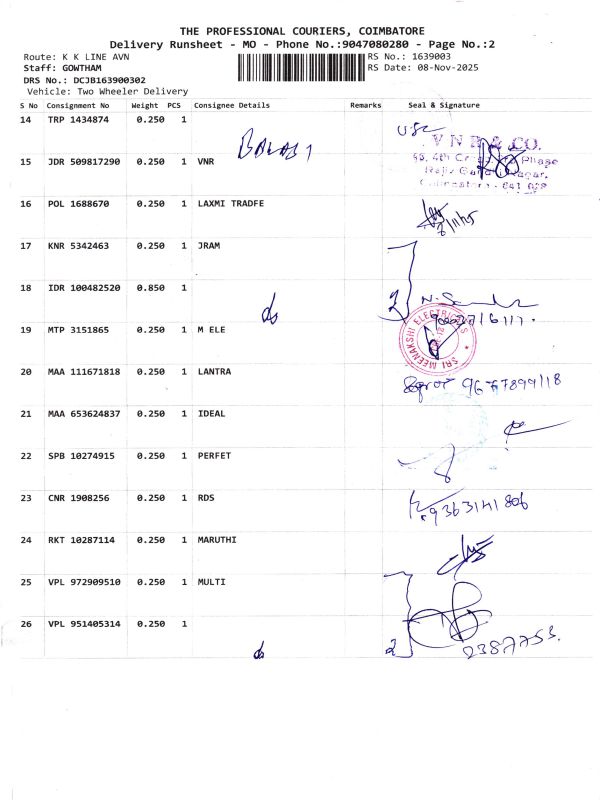 THE PROFESSIONAL COURIERS, COIMBATORE
Delivery Runsheet - MO - Phone No.:9047080280 - Page No.:2
Route: K K LINE AVN
RS No.: 1639003
Staff: GOWTHAM
RS Date: 08-Nov-2025
DRS No.: DCJB163900302
Vehicle: Two Wheeler Delivery
S No Consignment No Weight PCS Consignee Details Remarks Seal & Signature
14 TRP 1434874 0.250 1
V N R & CO.
15 JDR 509817290 0.250 1 VNR
Coimbatore - 641 028
16 POL 1688670 0.250 1 LAXMI TRADFE
17 KNR 5342463 0.250 1 JRAM
18 IDR 100482520 0.850 1
ds 2
19 MTP 3151865 0.250 1 M ELE
SRI MEENAKSHI ELECTRICALS
20 MAA 111671818 0.250 1 LANTRA
9677899118
21 MAA 653624837 0.250 1 IDEAL
22 SPB 10274915 0.250 1 PERFET
23 CNR 1908256 0.250 1 RDS
9363141806
24 RKT 10287114 0.250 1 MARUTHI
25 VPL 972909510 0.250 1 MULTI
26 VPL 951405314 0.250 1
ds 2